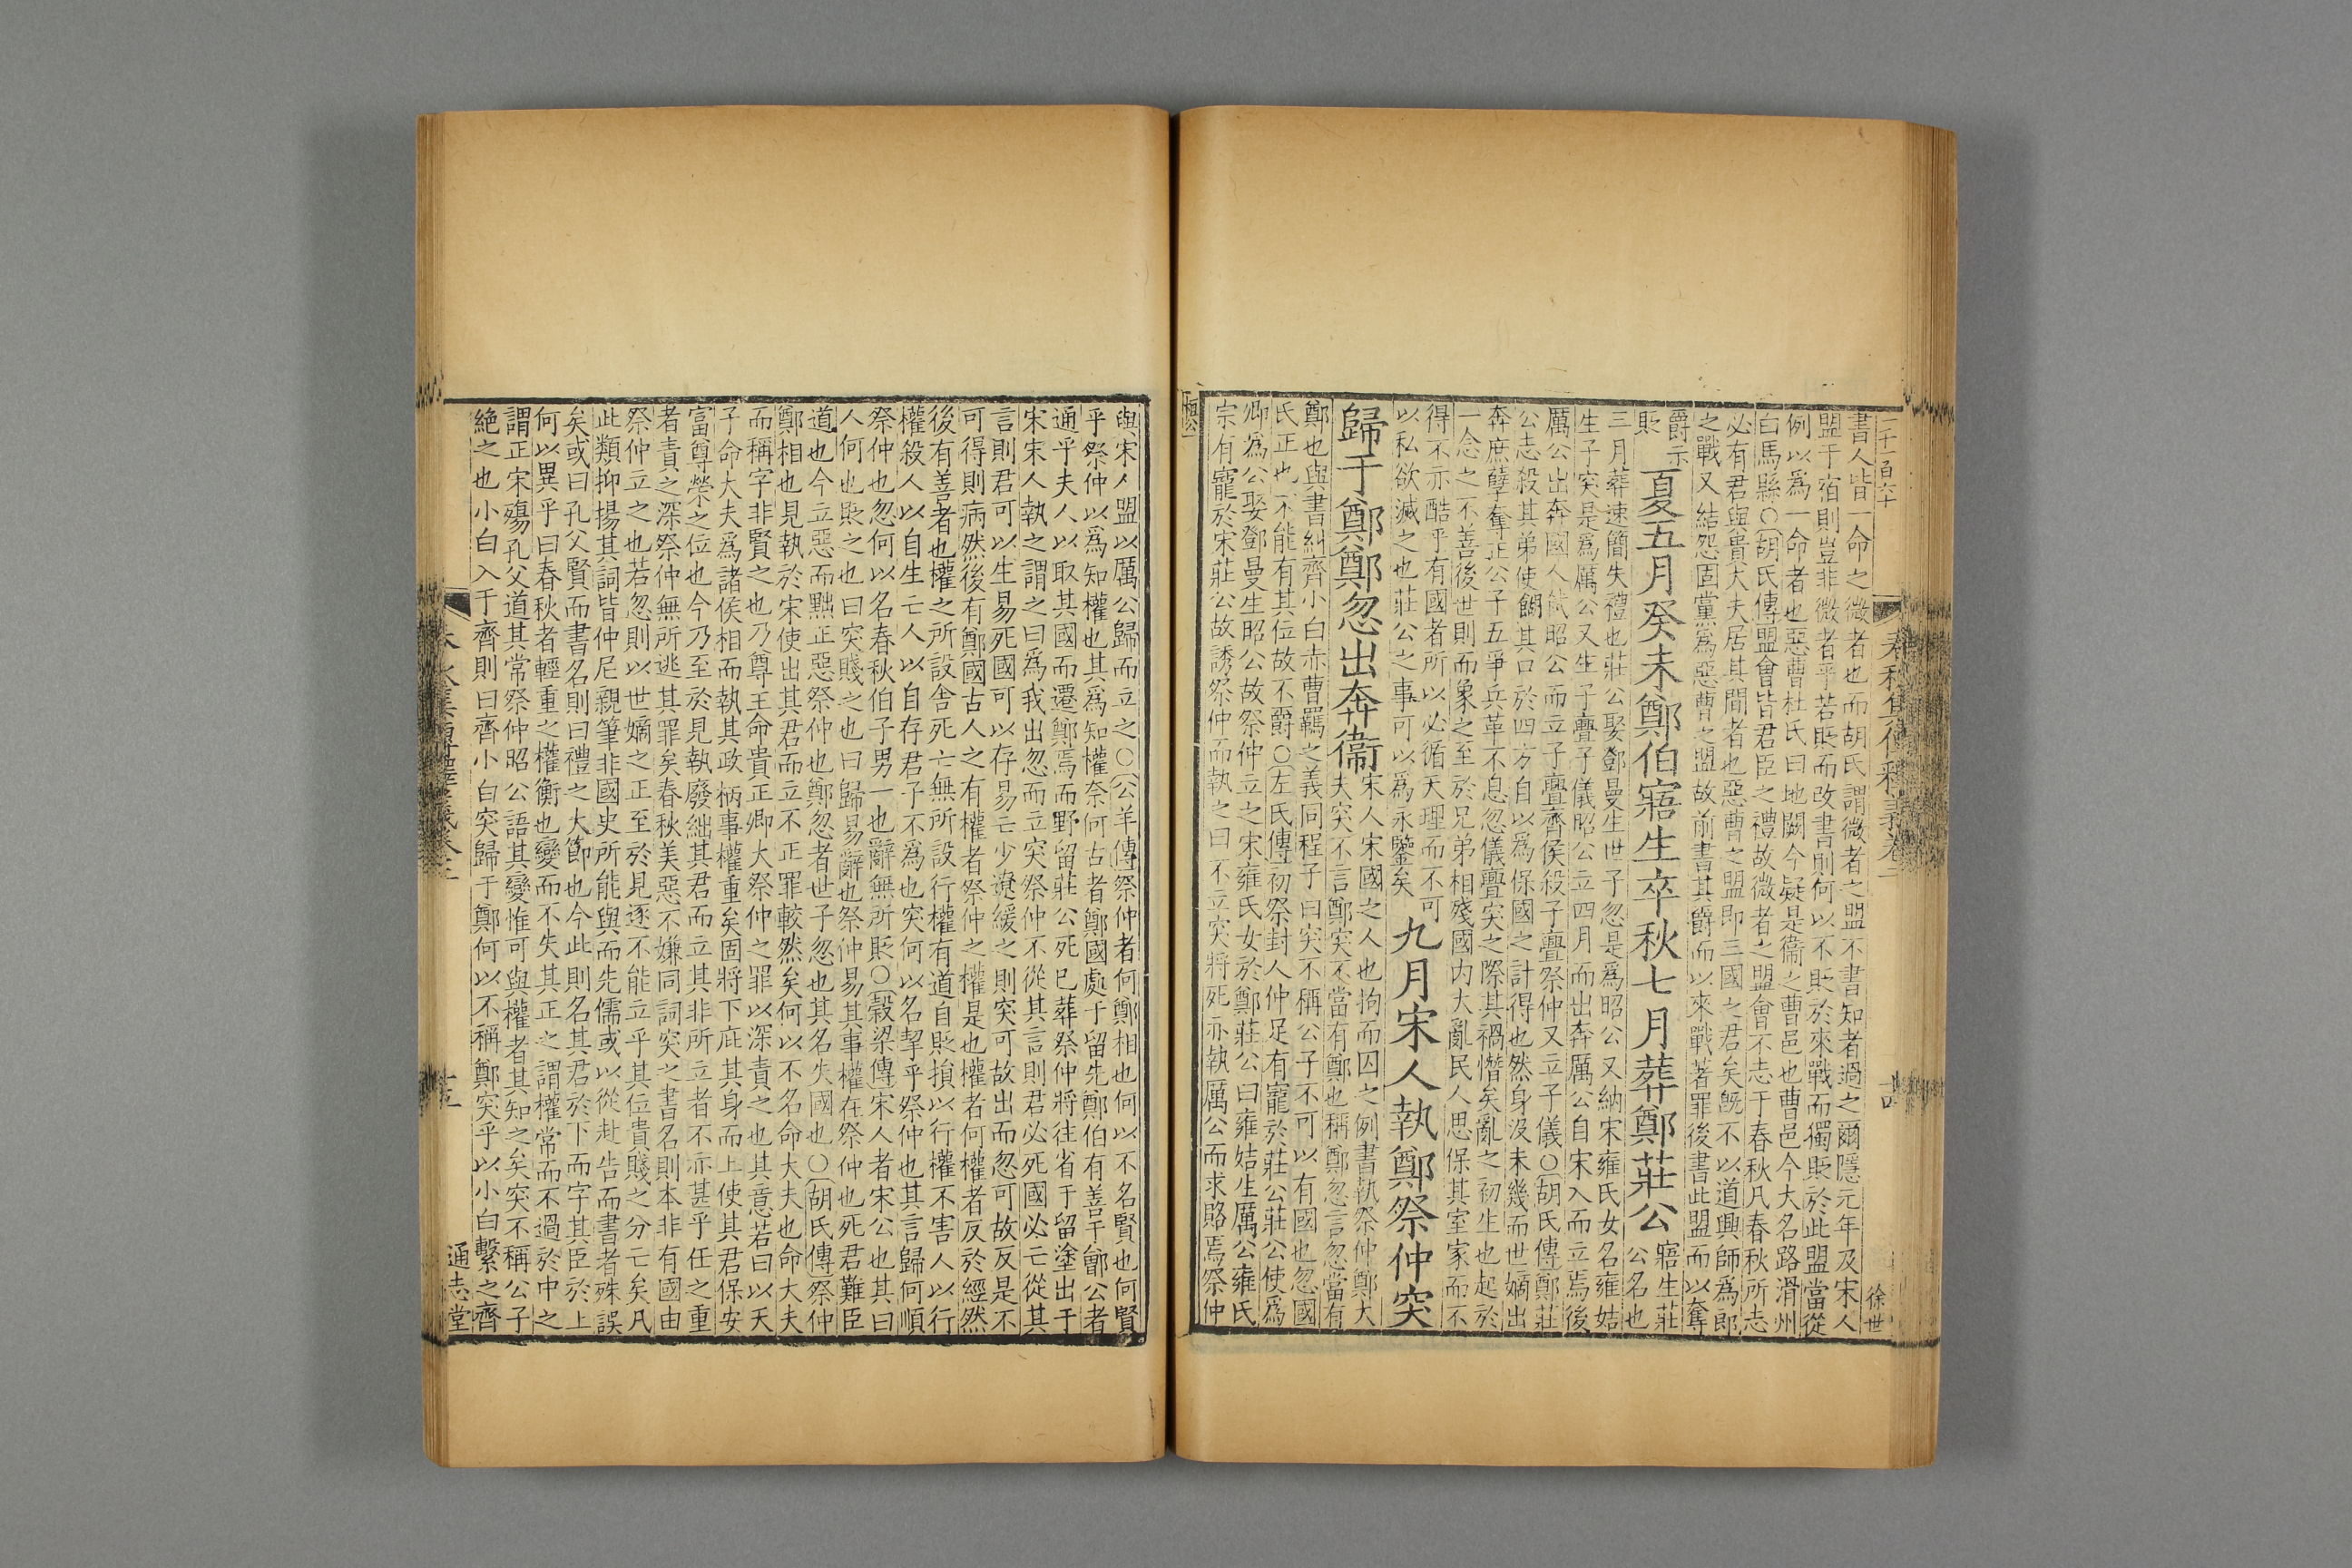 書人皆一命之微者也而胡氏謂微者之盟不書知者過之爾隱元年及宋人
盟于宿則豈非微者乎若貶而改書則何以不貶於來戰而獨貶於此盟當從
例以爲一命者也惡曹杜氏曰地闕今疑是衞之曹邑也曹邑今大名路滑州
白馬縣○胡氏傳盟會皆君臣之禮故微者之盟會不志于春秋凡春秋所志
必有君與貴大夫居其間者也惡曹之盟即三國之君矣旣不以道興師爲郎
之戰又結怨固黨爲惡曹之盟故前書其爵而以來戰著罪後書此盟而以奪
爵示
貶
夏五月癸未鄭伯寤生卒秋七月葬鄭莊公
寤生莊
公名也
三月葬速簡失禮也莊公娶鄧曼生世子忽是爲昭公又納宋雍氏女名雍姞
生子突是爲厲公又生子亹子儀昭公立四月而出奔厲公自宋入而立焉後
厲公出奔國人弑昭公而立子亹齊侯殺子亹祭仲又立子儀○胡氏傳鄭莊
公志殺其弟使餬其口於四方自以爲保國之計得也然身没未幾而世嫡出
奔庶孽奪正公子五爭兵革不息忽儀亹突之際其禍憯矣亂之初生也起於
一念之不善後世則而象之至於兄弟相殘國内大亂民人思保其室家而不
得不亦酷乎有國者所以必循天理而不可
以私欲滅之也莊公之事可以爲永鑒矣
九月宋人執鄭祭仲突
歸于鄭鄭忽出奔衞
宋人宋國之人也拘而囚之例書執祭仲鄭大
夫突不言鄭突不當有鄭也稱鄭忽言忽當有
鄭也與書糾齊小白赤曹羈之義同程子曰突不稱公子不可以有國也忽國
氏正也不能有其位故不爵○左氏傳初祭封人仲足有寵於莊公莊公使爲
卿爲公娶鄧曼生昭公故祭仲立之宋雍氏女於鄭莊公曰雍姞生厲公雍氏
宗有寵於宋莊公故誘祭仲而執之曰不立突將死亦執厲公而求賂焉祭仲
桓公
春秋集傳釋義卷二
徐世
與宋人盟以厲公歸而立之○公羊傳祭仲者何鄭相也何以不名賢也何賢
乎祭仲以爲知權也其爲知權奈何古者鄭國處于留先鄭伯有善于鄶公者
通乎夫人以取其國而遷鄭焉而野留莊公死已葬祭仲將往省于留塗出于
宋宋人執之謂之曰爲我出忽而立突祭仲不從其言則君必死國必亡從其
言則君可以生易死國可以存易亡少遼緩之則突可故出而忽可故反是不
可得則病然後有鄭國古人之有權者祭仲之權是也權者何權者反於經然
後有善者也權之所設舍死亡無所設行權有道自貶損以行權不害人以行
權殺人以自生亡人以自存君子不爲也突何以名挈乎祭仲也其言歸何順
祭仲也忽何以名春秋伯子男一也辭無所貶○榖梁傳宋人者宋公也其曰
人何也貶之也曰突賤之也曰歸易辭也祭仲易其事權在祭仲也死君難臣
道也今立惡而黜正惡祭仲也鄭忽者世子忽也其名失國也○胡氏傳祭仲
鄭相也見執於宋使出其君而立不正罪較然矣何以不名命大夫也命大夫
而稱字非賢之也乃尊王命貴正卿大祭仲之罪以深責之也其意若曰以天
子命大夫爲諸侯相而執其政柄事權重矣固將下庇其身而上使其君保安
富尊榮之位也今乃至於見執廢絀其君而立其非所立者不亦甚乎任之重
者責之深祭仲無所逃其罪矣春秋美惡不嫌同詞突之書名則本非有國由
祭仲立之也若忽則以世嫡之正至於見逐不能立乎其位貴賤之分亡矣凡
此類抑揚其詞皆仲尼親筆非國史所能與而先儒或以從赴告而書者殊誤
矣或曰孔父賢而書名則曰禮之大節也今此則名其君於下而字其臣於上
何以異乎曰春秋者輕重之權衡也變而不失其正之謂權常而不過於中之
謂正宋殤孔父道其常祭仲昭公語其變惟可與權者其知之矣突不稱公子
絶之也小白入于齊則曰齊小白突歸于鄭何以不稱鄭突乎以小白繫之齊
通志堂